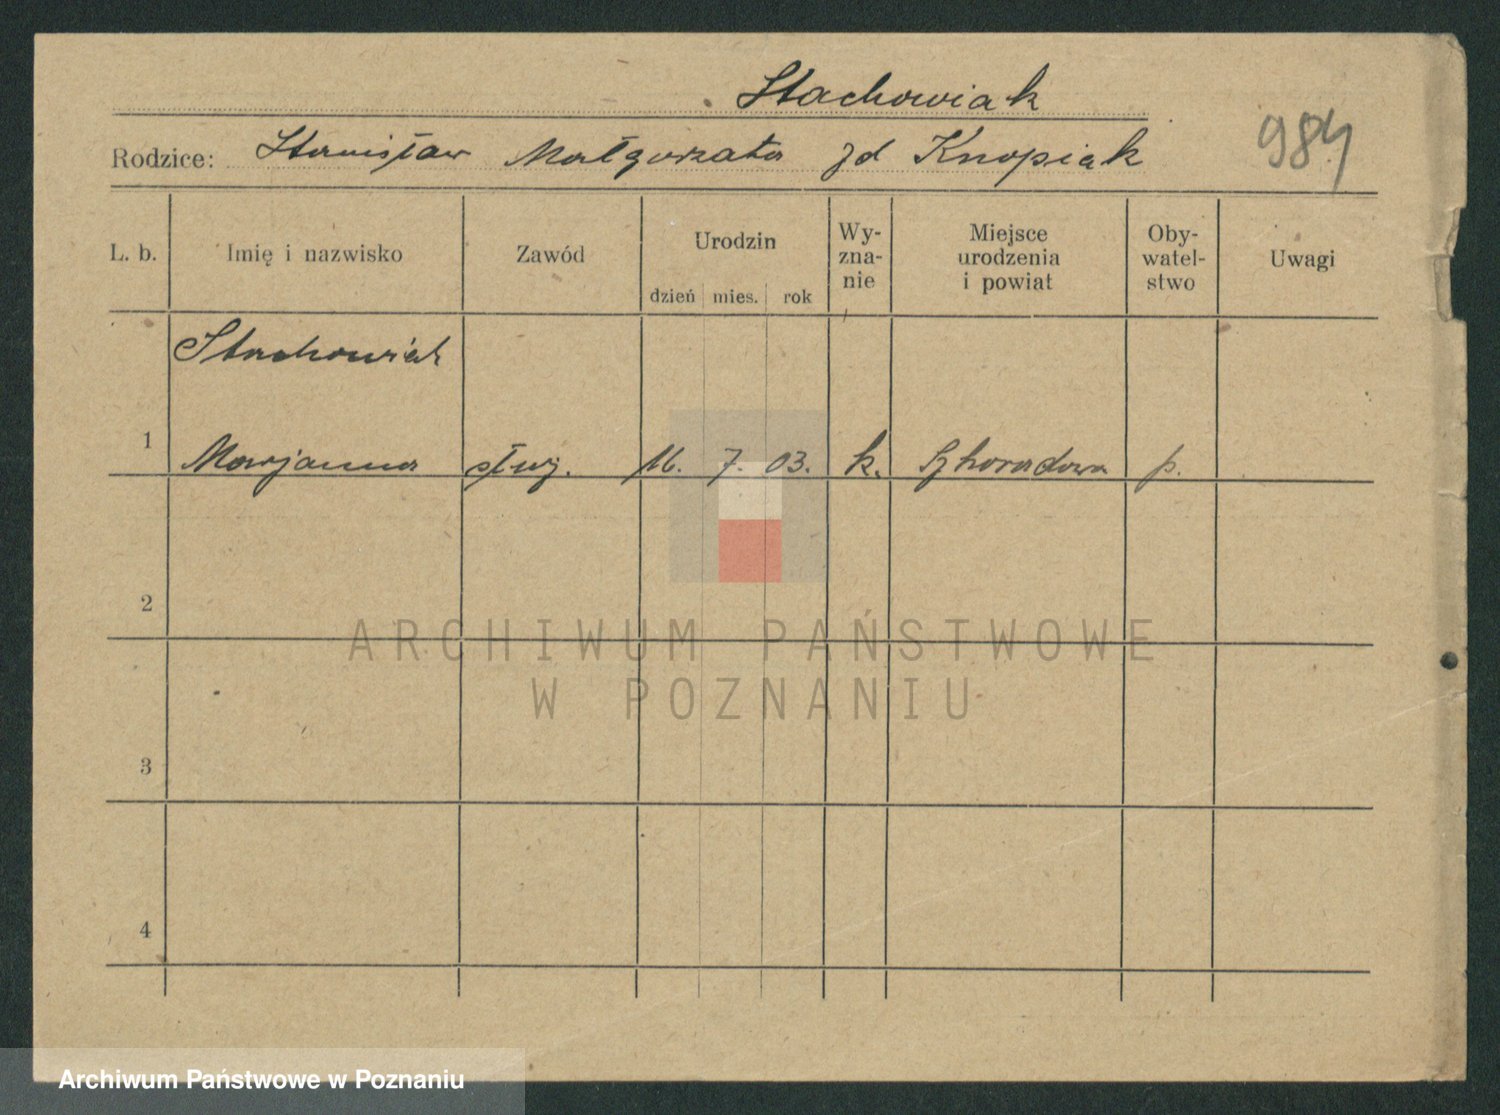 Stachowiak
984
Rodzice: Stanisław Małgorzata zd Knopiak
L. b. Imię i nazwisko Zawód Urodzin dzień mies. rok Wy-zna-nie Miejsce urodzenia i powiat Oby-watel-stwo Uwagi
Stachowiak
1 Marjanna służ. 16. 7. 03. k. p.
2
ARCHIWUM PAŃSTWOWE
W POZNANIU
3
4
Archiwum Państwowe w Poznaniu